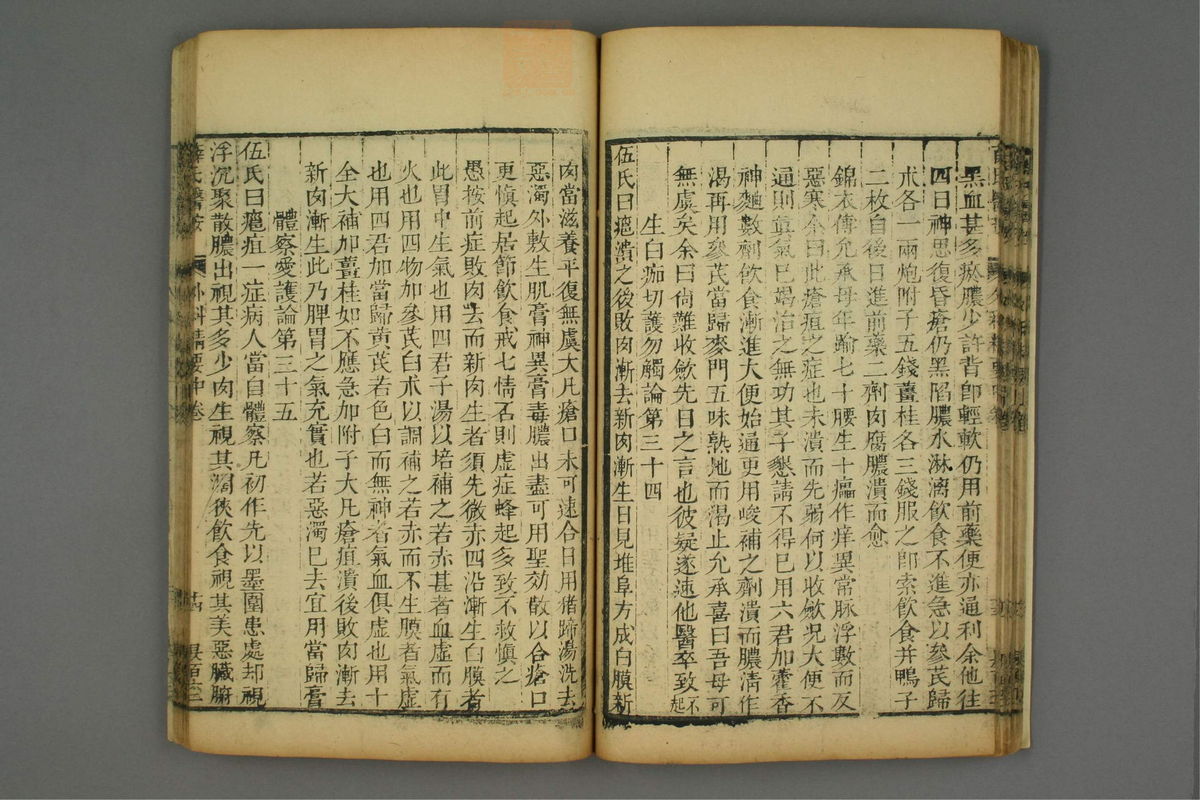 黑血甚多瘀膿少許背卽輕軟仍用前藥便亦通利余他往
四日神思復昏瘡仍黑陷膿水淋漓飲食不進急以參芪歸
朮各一兩炮附子五錢薑桂各三錢服之卽索飲食并鴨子
二枚自後日進前藥二劑肉腐膿潰而愈
錦衣傅允承母年踰七十腰生十癰作痒異常脉浮數而反
惡寒余曰此瘡疽之症也未潰而先弱何以收斂况大便不
通則眞氣已竭治之無功其子懇請不得已用六君加藿香
神麯數劑飲食漸進大便始通更用峻補之劑潰而膿淸作
渴再用參芪當歸麥門五味熟地而渴止允承喜曰吾母可
無虞矣余曰尙難收斂先日之言也彼疑遂速他醫卒致不起
生白痂切護勿觸論第三十四
伍氏曰癰潰之後敗肉漸去新肉漸生日見堆阜方成白膜新
肉當滋養平復無虞大凡瘡口未可速合日用猪蹄湯洗去
惡濁外敷生肌膏神異膏毒膿出盡可用聖効散以合瘡口
更愼起居節飲食戒七情否則虛症蜂起多致不救愼之
愚按前症敗肉去而新肉生者須先微赤四沿漸生白膜者
此胃中生氣也用四君子湯以培補之若赤甚者血虛而有
火也用四物加參芪白朮以調補之若赤而不生膜者氣虛
也用四君加當歸黃芪若色白而無神者氣血俱虛也用十
全大補加薑桂如不應急加附子大凡瘡疽潰後敗肉漸去
新肉漸生此乃脾胃之氣充實也若惡濁已去宜用當歸膏
體察愛護論第三十五
伍氏曰癰疽一症病人當自體察凡初作先以墨圍患處却視
浮沉聚散膿出視其多少肉生視其濶狹飲食視其美惡臟腑
薛氏醫按 外科精要中卷